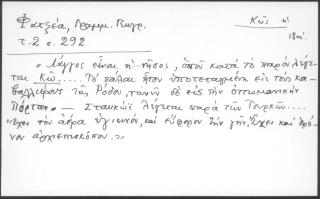 Φατζέα, Γραμμ. Γεωγρ.
Κῶς ἡ
τ. 2 σ. 292
18ος
"Λάγγος εἶναι ἡ νῆσος, ὁποῦ κατὰ τὸ παρὸν λέγε-
ται Κῶ..... Τὸ πάλαι ἦτον ὑποτεταγμένη εἰς τοὺς κα-
βαλλιέρους τῆς Ρόδου, τανῦν δὲ εἰς τὴν ὀττωμανικὴν
Πόρταν — Σταυκιὸϊ λέγεται παρὰ τῶν Τουρκῶν....
"Ἔχει τὸν ἀέρα ὑγιεινόν, καὶ εὔφορον τὴν γῆν. Ἔχει καὶ θρό-
νον ἀρχιεπισκόπου."